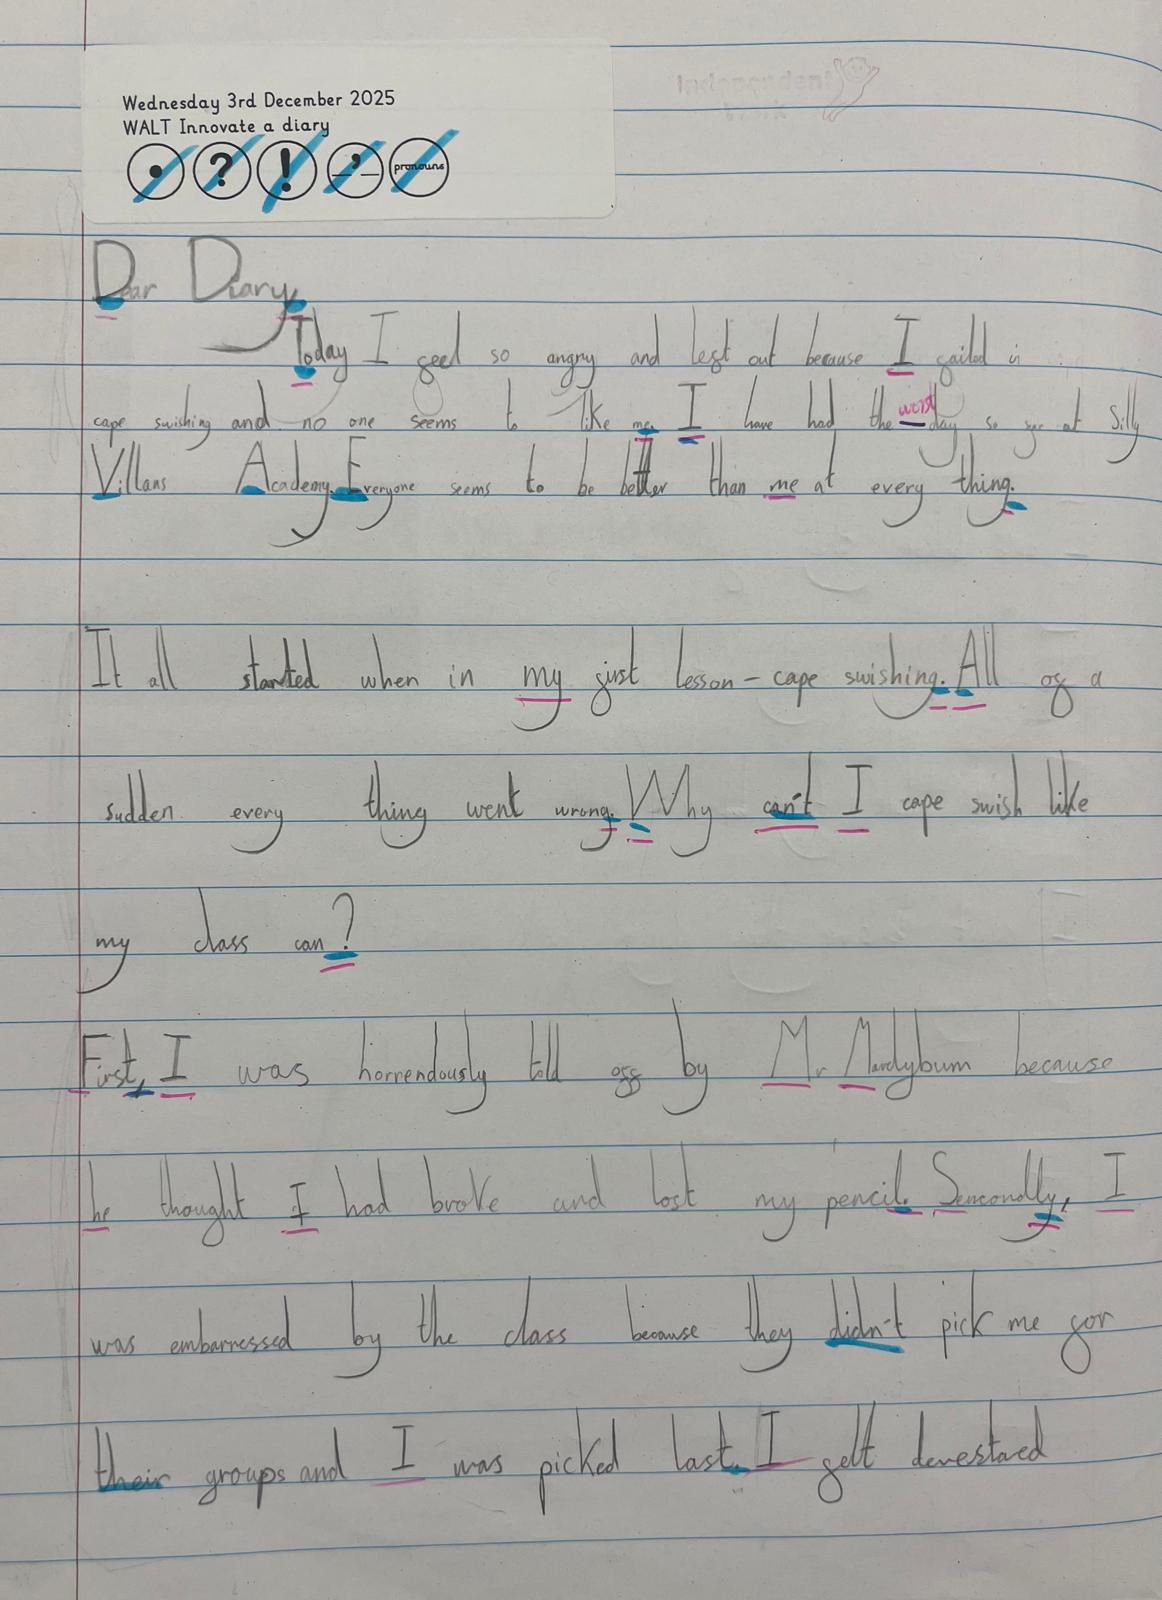 Independent
work
Wednesday 3rd December 2025
WALT Innovate a diary
. ? ! _'_ pronouns
Dear Diary,
Today I feel so angry and left out because I failed in
cape swishing and no one seems to like me. I have had the worst day so far at Silly
Villans Academy. Everyone seems to be better than me at every thing.
It all started when in my first lesson - cape swishing. All of a
sudden every thing went wrong. Why can't I cape swish like
my class can?
First, I was horrendously told off by Mr Mardybum because
he thought I had broke and lost my pencil. Sencondly, I
was embarressed by the class because they didn't pick me for
their groups and I was picked last. I felt devestaed